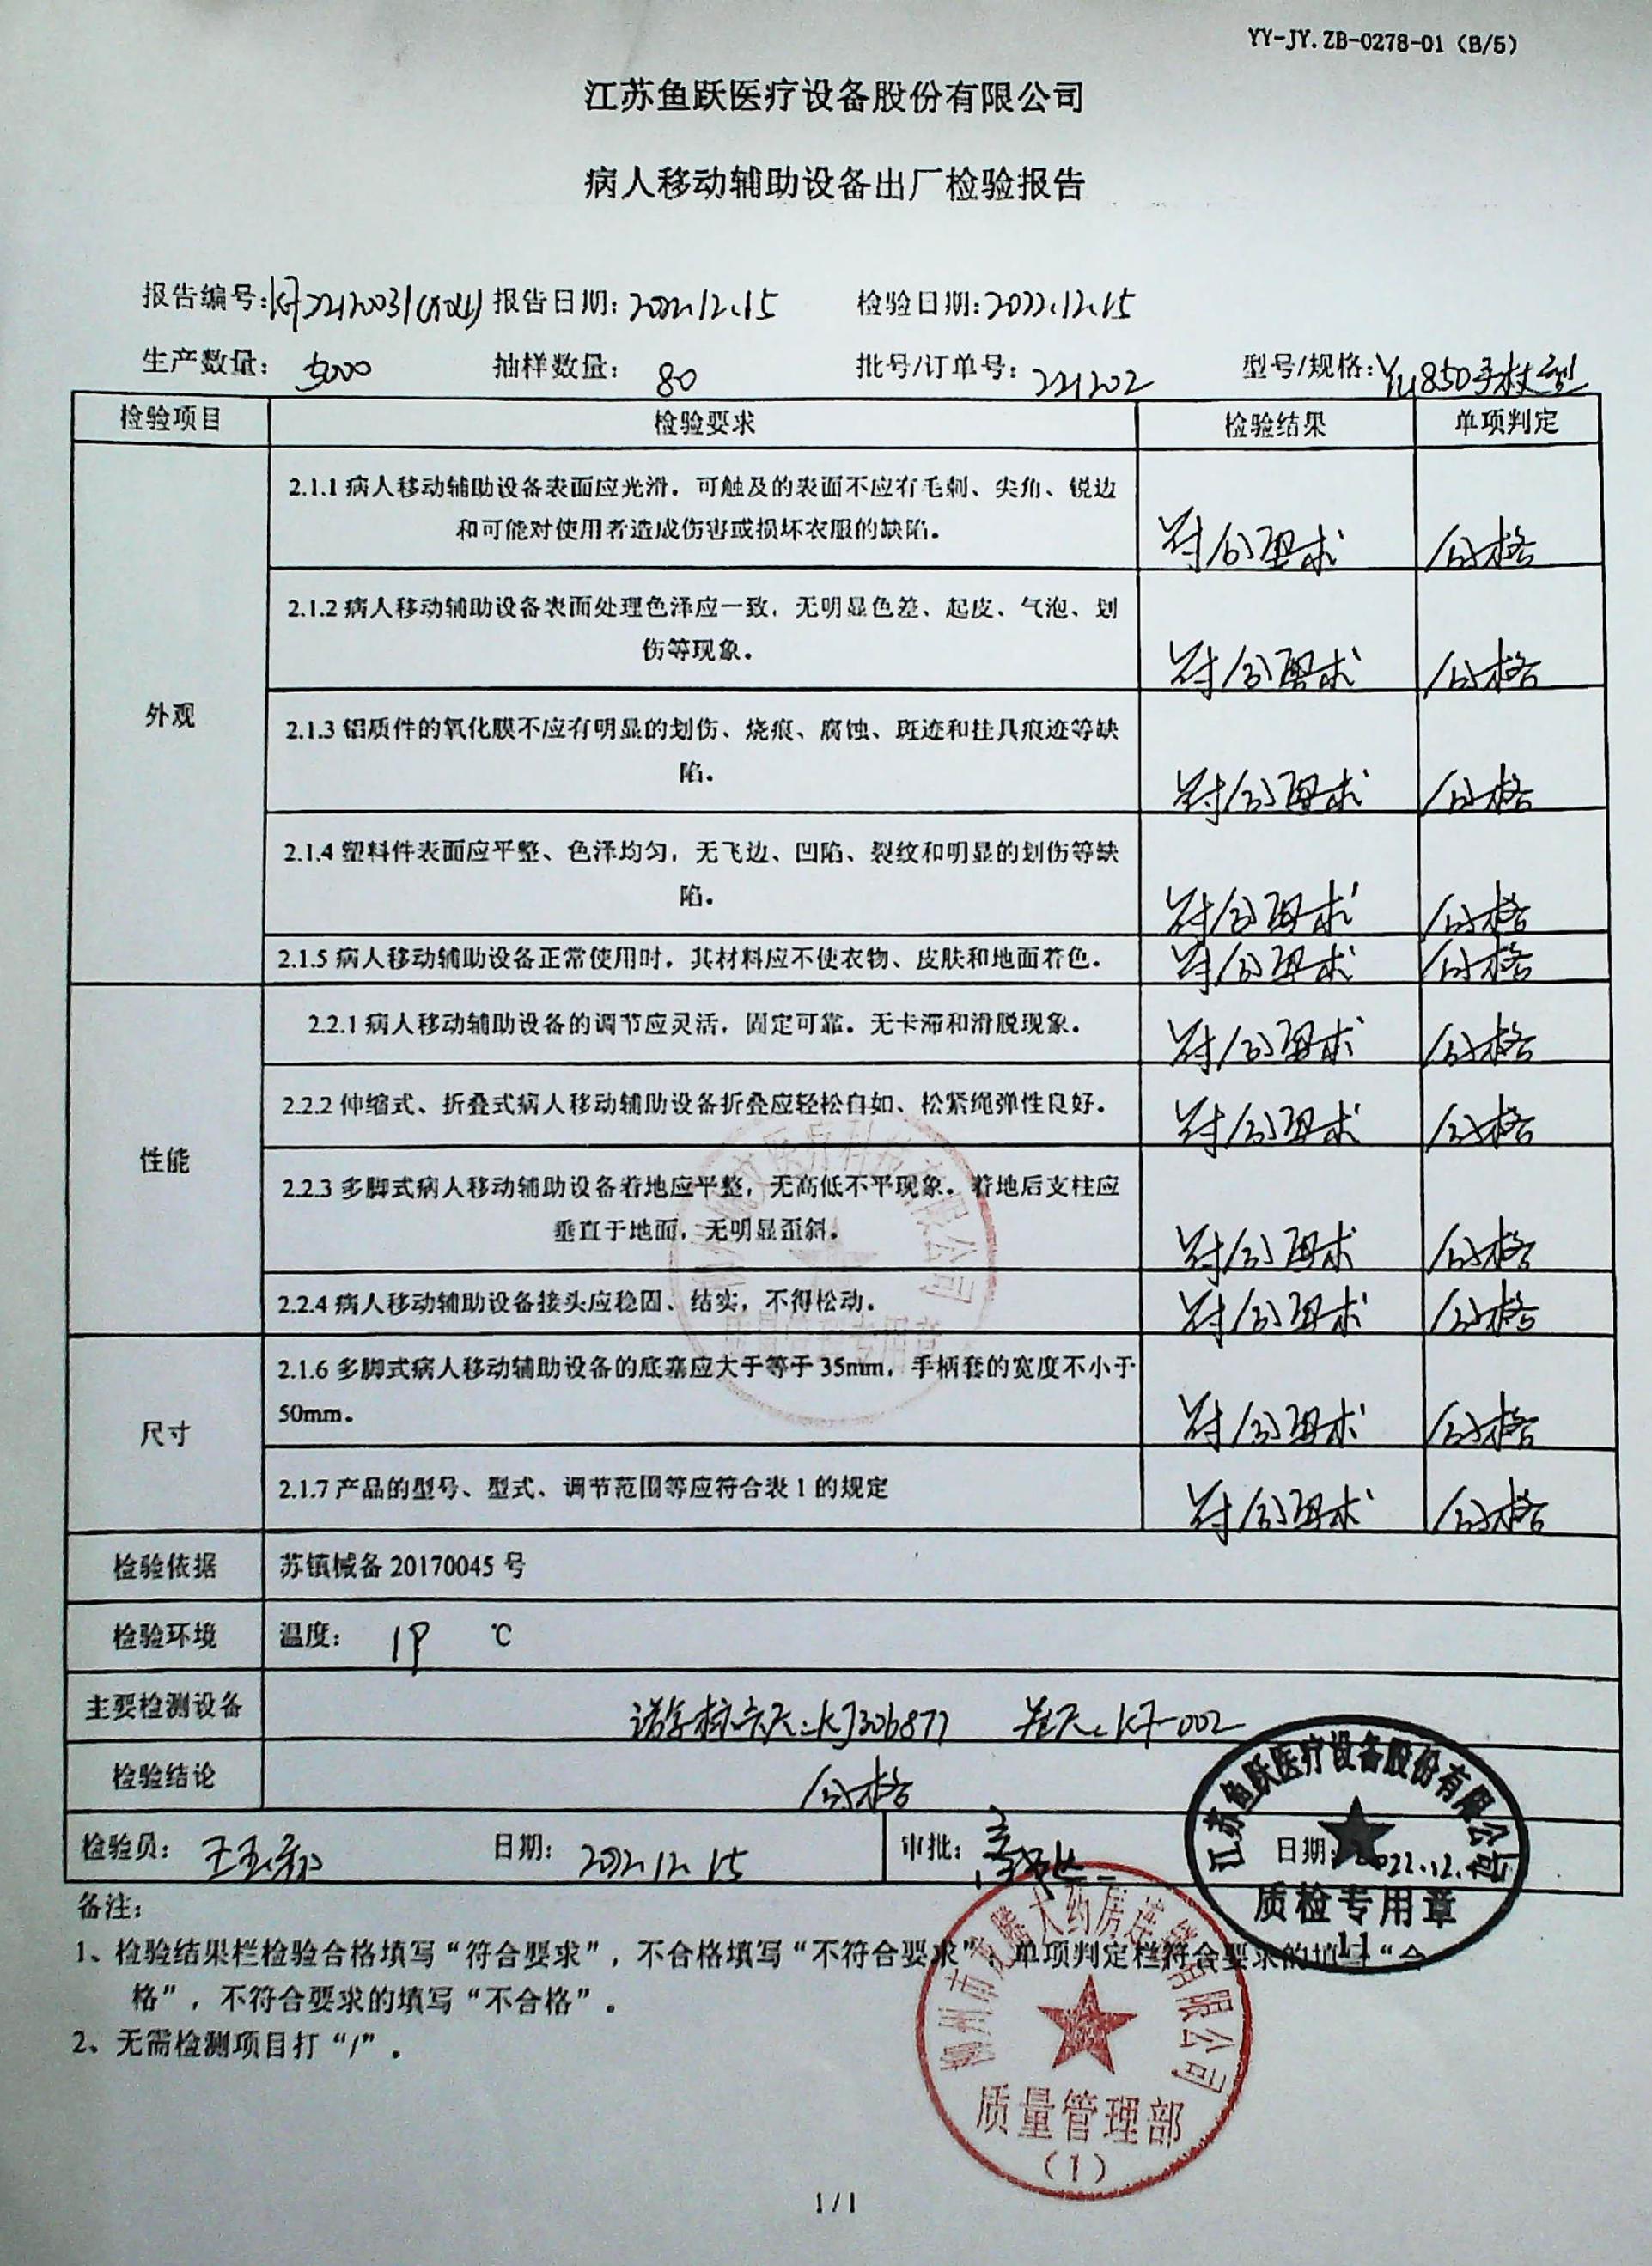 YY-JY.ZB-0278-01（B/5）
江苏鱼跃医疗设备股份有限公司
病人移动辅助设备出厂检验报告
报告编号: 报告日期: 2022.12.15 检验日期: 2022.12.15
生产数量: 5000 抽样数量: 80 批号/订单号: 221202 型号/规格: YU850手杖型
检验项目 检验要求 检验结果 单项判定
外观
2.1.1 病人移动辅助设备表面应光滑，可触及的表面不应有毛刺、尖角、锐边
和可能对使用者造成伤害或损坏衣服的缺陷。 符合要求 合格
2.1.2 病人移动辅助设备表面处理色泽应一致，无明显色差、起皮、气泡、划
伤等现象。 符合要求 合格
2.1.3 铝质件的氧化膜不应有明显的划伤、烧痕、腐蚀、斑迹和挂具痕迹等缺
陷。 符合要求 合格
2.1.4 塑料件表面应平整、色泽均匀，无飞边、凹陷、裂纹和明显的划伤等缺
陷。 符合要求 合格
2.1.5 病人移动辅助设备正常使用时，其材料应不使衣物、皮肤和地面着色。 符合要求 合格
性能
2.2.1 病人移动辅助设备的调节应灵活，固定可靠。无卡滞和滑脱现象。 符合要求 合格
2.2.2 伸缩式、折叠式病人移动辅助设备折叠应轻松自如、松紧绳弹性良好。 符合要求 合格
2.2.3 多脚式病人移动辅助设备着地应平整，无高低不平现象。着地后支柱应
垂直于地面，无明显歪斜。 符合要求 合格
2.2.4 病人移动辅助设备接头应稳固、结实，不得松动。 符合要求 合格
尺寸
2.1.6 多脚式病人移动辅助设备的底塞应大于等于 35mm，手柄套的宽度不小于
50mm。 符合要求 合格
2.1.7 产品的型号、型式、调节范围等应符合表 1 的规定 符合要求 合格
检验依据 苏镇械备 20170045 号
检验环境 温度: 19 ℃
主要检测设备 游标卡尺: 卷尺: KF-002
检验结论 合格
检验员: 日期: 2022.12.15 审批: 日期: 2022.12.
江苏鱼跃医疗设备股份有限公司
质检专用章
11
备注:
1、检验结果栏检验合格填写“符合要求”，不合格填写“不符合要求”，单项判定栏符合要求的填写“合
格”，不符合要求的填写“不合格”。
2、无需检测项目打“/”。
大药房连锁有限公司
质量管理部
（1）
1 / 1